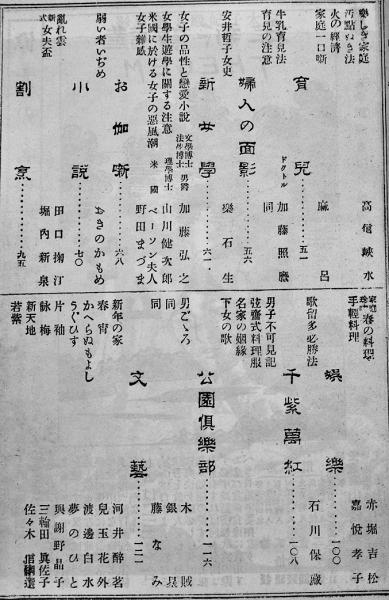 樂しき家庭 高信峽水
汚點ぬき法
火の經濟
家庭一口噺 麻呂
育兒……五一
牛乳育兒法 ドクトル 加藤照麿
育兒の注意 同
婦人の面影……五六
安井哲子女史 樂石生
新女學……六一
女子の品性と戀愛小說 文學博士 法學博士 男爵 加藤弘之
女學生遊學に關する注意 理學博士 山川健次郎
米國に於ける女子の惡風潮 米國 ベーソン夫人
女子雜感 野田まづま
お伽噺……六八
弱い者いぢめ おきのかもめ
小說……七〇
亂れ雲 田口掬汀
新式女夫盃 堀内新泉
割烹……九五
家庭 春の料理 赤堀吉松
手輕料理 嘉悅孝子
娛樂……一〇〇
歌留多必勝法 石川保藏
千紫萬紅……一〇八
男子不可見記
弦齋式料理服
名家の姻緣
下女の歌
公園俱樂部……一一六
男ごゝろ 木賊
同 銀
同 藤なみ
文藝……一二一
新年の家 河井醉茗
春宵 兒玉花外
かへらぬもよし 渡邊白水
うぐひす 夢のひと
片袖 與謝野晶子
詠梅 三輪田眞佐子
新天地 佐々木
若紫